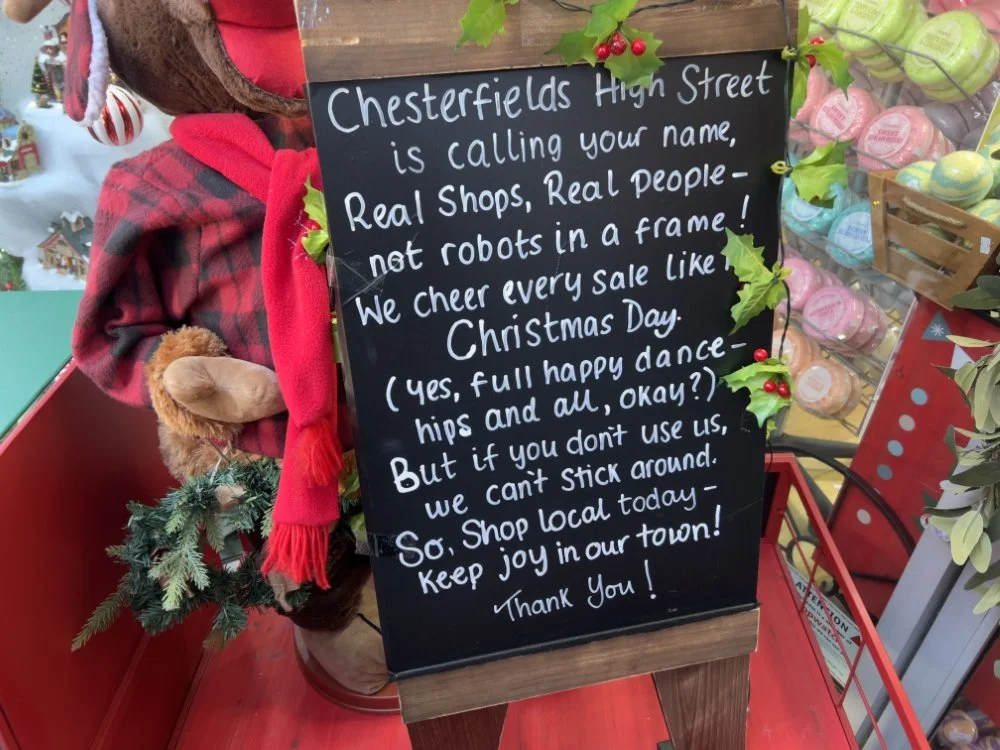 Chesterfields High Street
is calling your name,
Real Shops, Real people-
not robots in a frame!
We cheer every sale like
Christmas Day.
(yes, full happy dance-
hips and all, okay?)
But if you don't use us,
we can't stick around.
So, Shop local today-
keep joy in our town!
Thank You!
ATTENTION